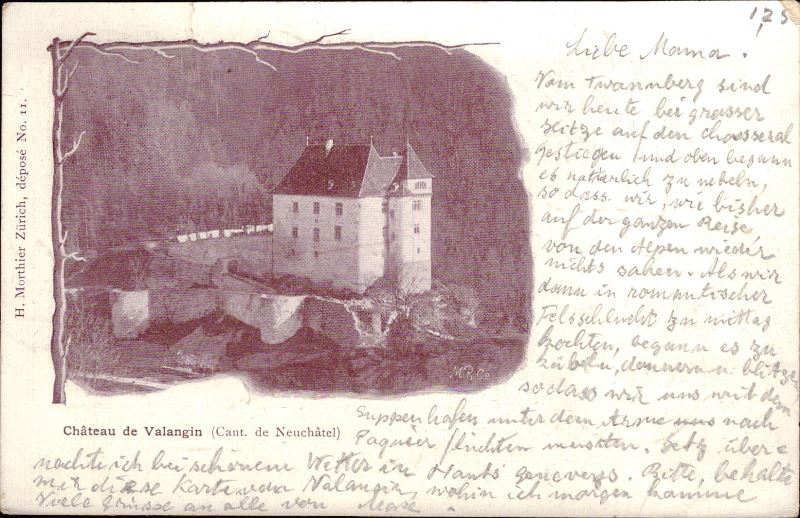 1,25
H. Morthier Zürich, déposé No. 11.
Liebe Mama.
Vom Twannberg sind
wir heute bei grosser
Hitze auf den Chasseral
gestiegen und oben begann
es natürlich zu nebeln,
so dass wir, wie bisher
auf der ganzen Reise
von den Alpen wieder
nichts sahen. Als wir
dann in romantischer
Felsschlucht zu mittag
kochten, begann es zu
kübeln, donnern u. blitzen
sodass wir uns mit dem
Suppenhafen unter dem Arme nach
Paquier flüchten mussten. Jetz über=
nachte ich bei schönem Wetter in Hauts geneveys. Bitte, behalte
mir diese Karte von Valangin, wohin ich morgen komme
Viele Grüsse an alle von
M.R.Co
Château de Valangin (Cant. de Neuchâtel)